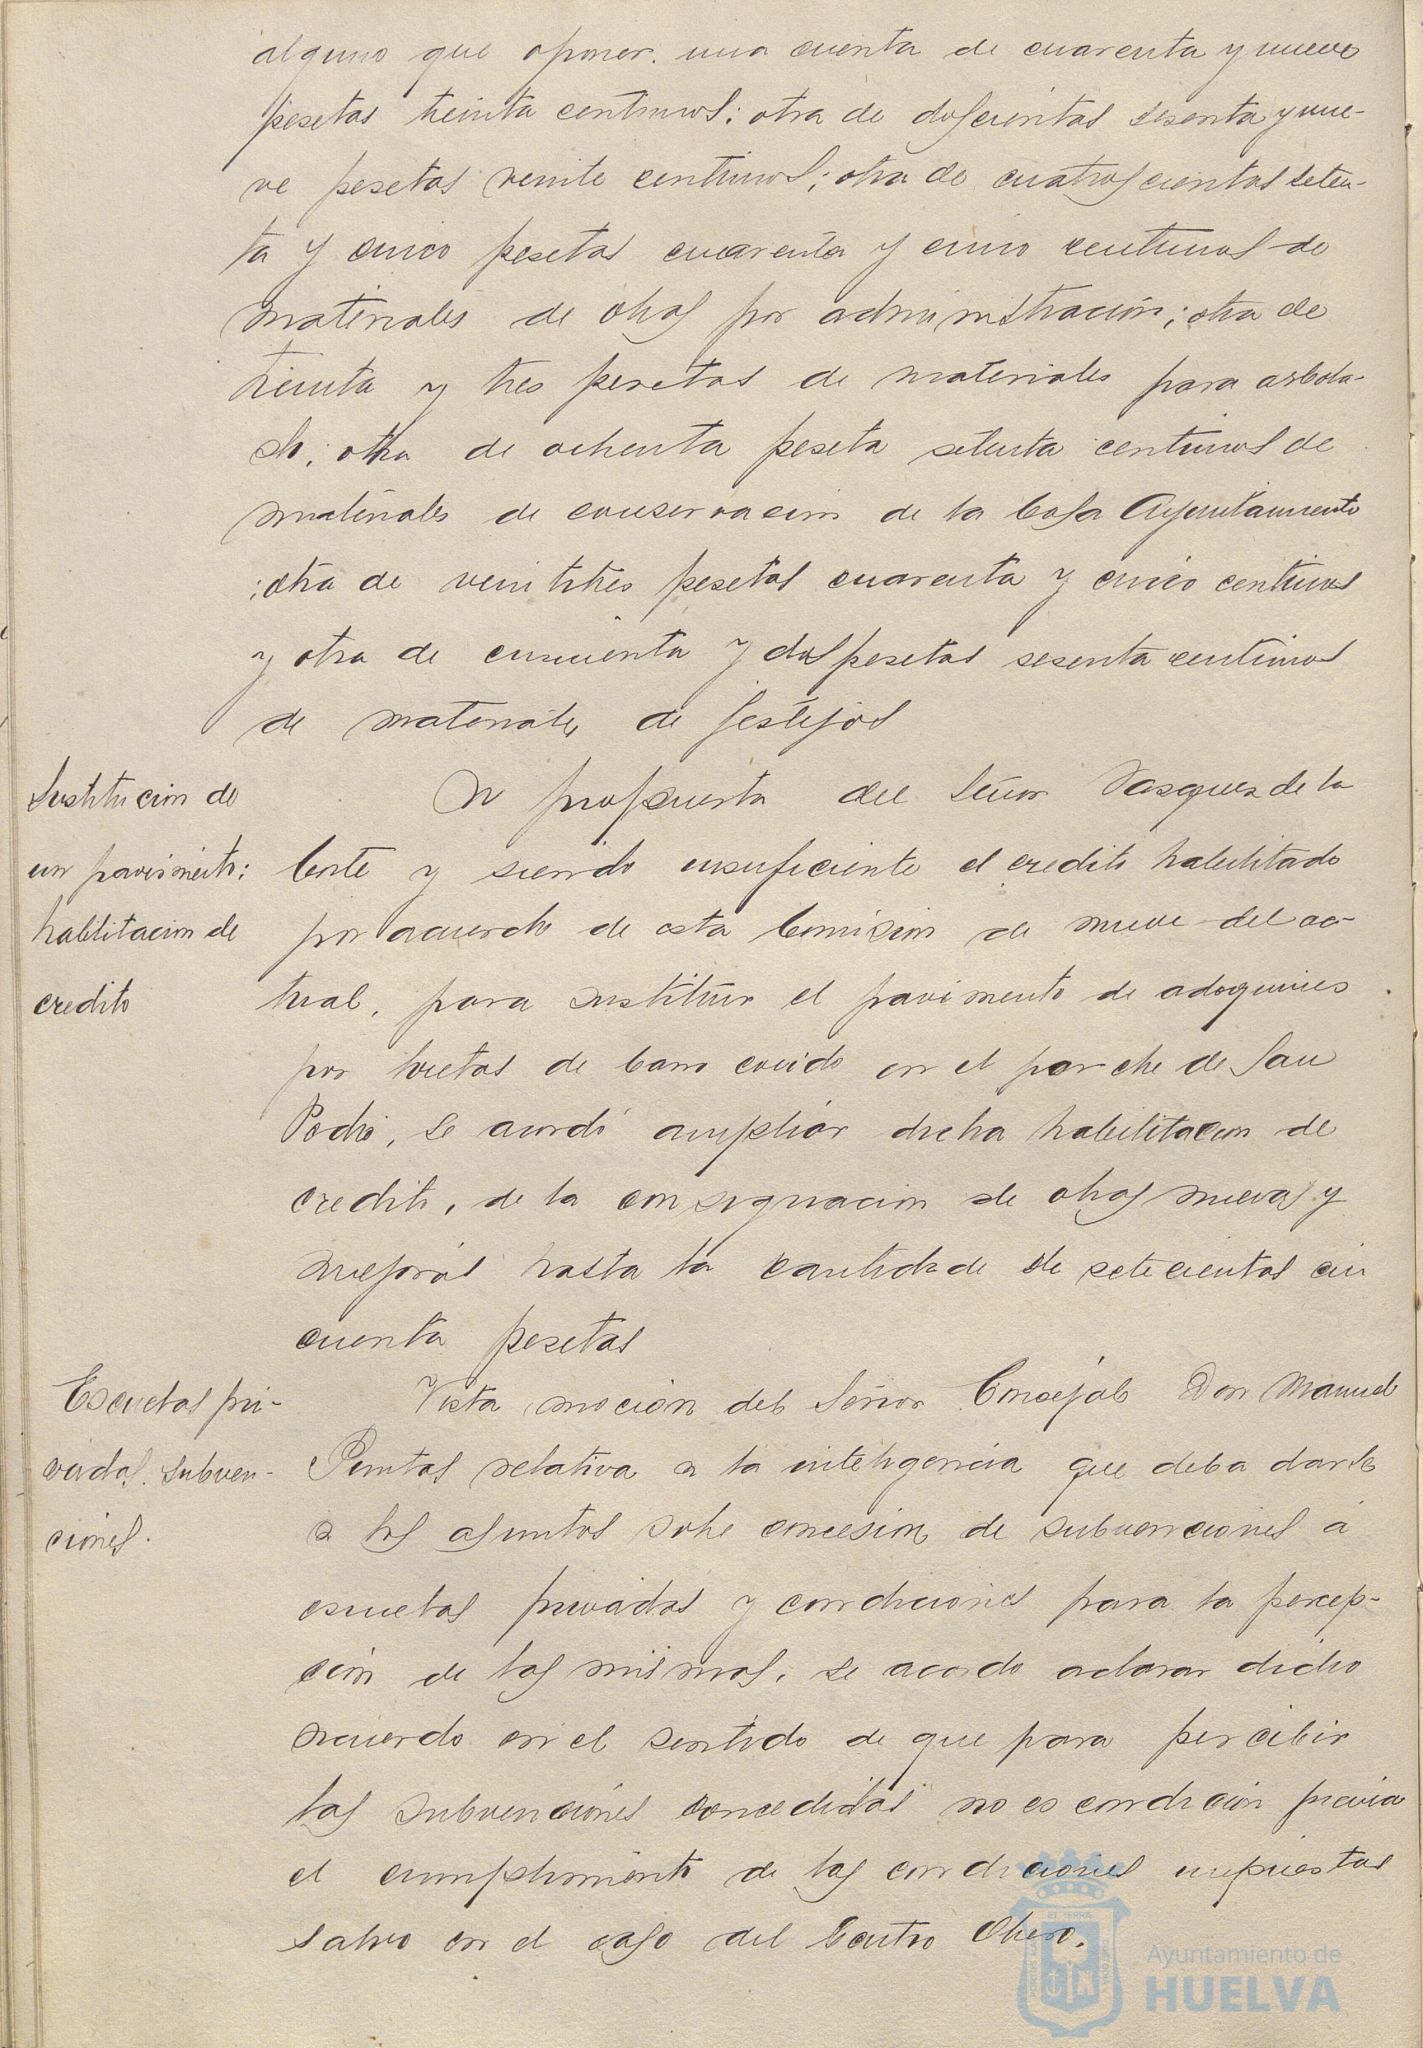 alguno que oponer. una cuenta de cuarenta y nueve
pesetas treinta centimos; otra de doscientas sesenta y nue-
ve pesetas veinte centimos; otra de cuatroscientas seten-
ta y cinco pesetas cuarenta y cinco centimos de
materiales de obras por administración; otra de
treinta y tres pesetas de materiales para arbola-
do; otra de ochenta peseta setenta centimos de
materiales de conservacion de la Casa Ayuntamiento
; otra de veintitres pesetas cuarenta y cinco centimos
y otra de cincuenta y dos pesetas sesenta centimos
de materiales de festejos
Sustitucion de
un pavimento;
habilitacion de
credito
A propuesta del Señor Vazquez de la
Corte y siendo insuficiente el credito habilitado
por acuerdo de esta Comision de nueve del ac-
tual, para sustituir el pavimento de adoquines
por losetas de barro cocido en el porche de San
Pedro, se acordó ampliar dicha habilitacion de
credito, de la consignacion de obras nuevas y
mejoras hasta la cantidad de de setecientas cin
cuenta pesetas
Escuelas pri-
vadas. Subven-
ciones.
Vista mocion del Señor Concejal Don Manuel
Puntas relativa a la inteligencia que deba darse
a los asuntos sobre concesion de subvenciones á
escuelas privadas y condiciones para la percep-
cion de las mismas, se acordo aclarar dicho
acuerdo en el sentido de que para percibir
las subvenciones concedidas no es condicion previa
el cumplimiento de las condiciones impuestas
salvo en el caso del Centro Obrero.
Ayuntamiento de
HUELVA